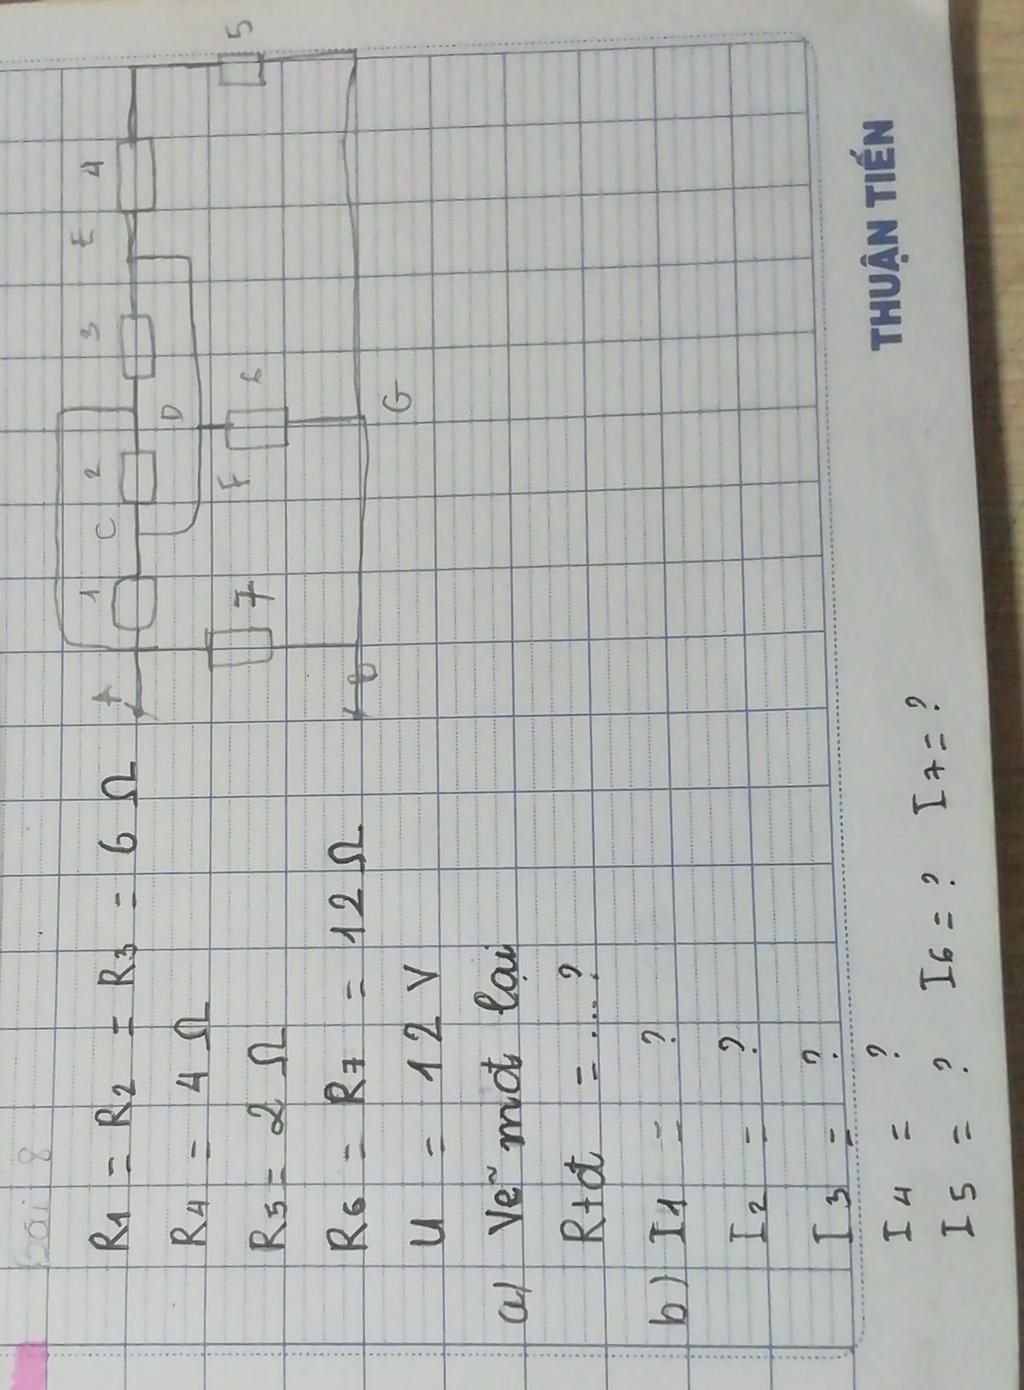 bài 8
R1 = R2 = R3 = 6 Ω
R4 = 4 Ω
R5 = 2 Ω
R6 = R7 = 12 Ω
U = 12 V
a) Vẽ mđ lại
Rtđ = ....?
b) I1 = ?
I2 = ?
I3 = ?
I4 = ?
I5 = ? I6 = ? I7 = ?
A 1 C 2 D 3 E 4
7 F 6 5
B G
THUẬN TIẾN